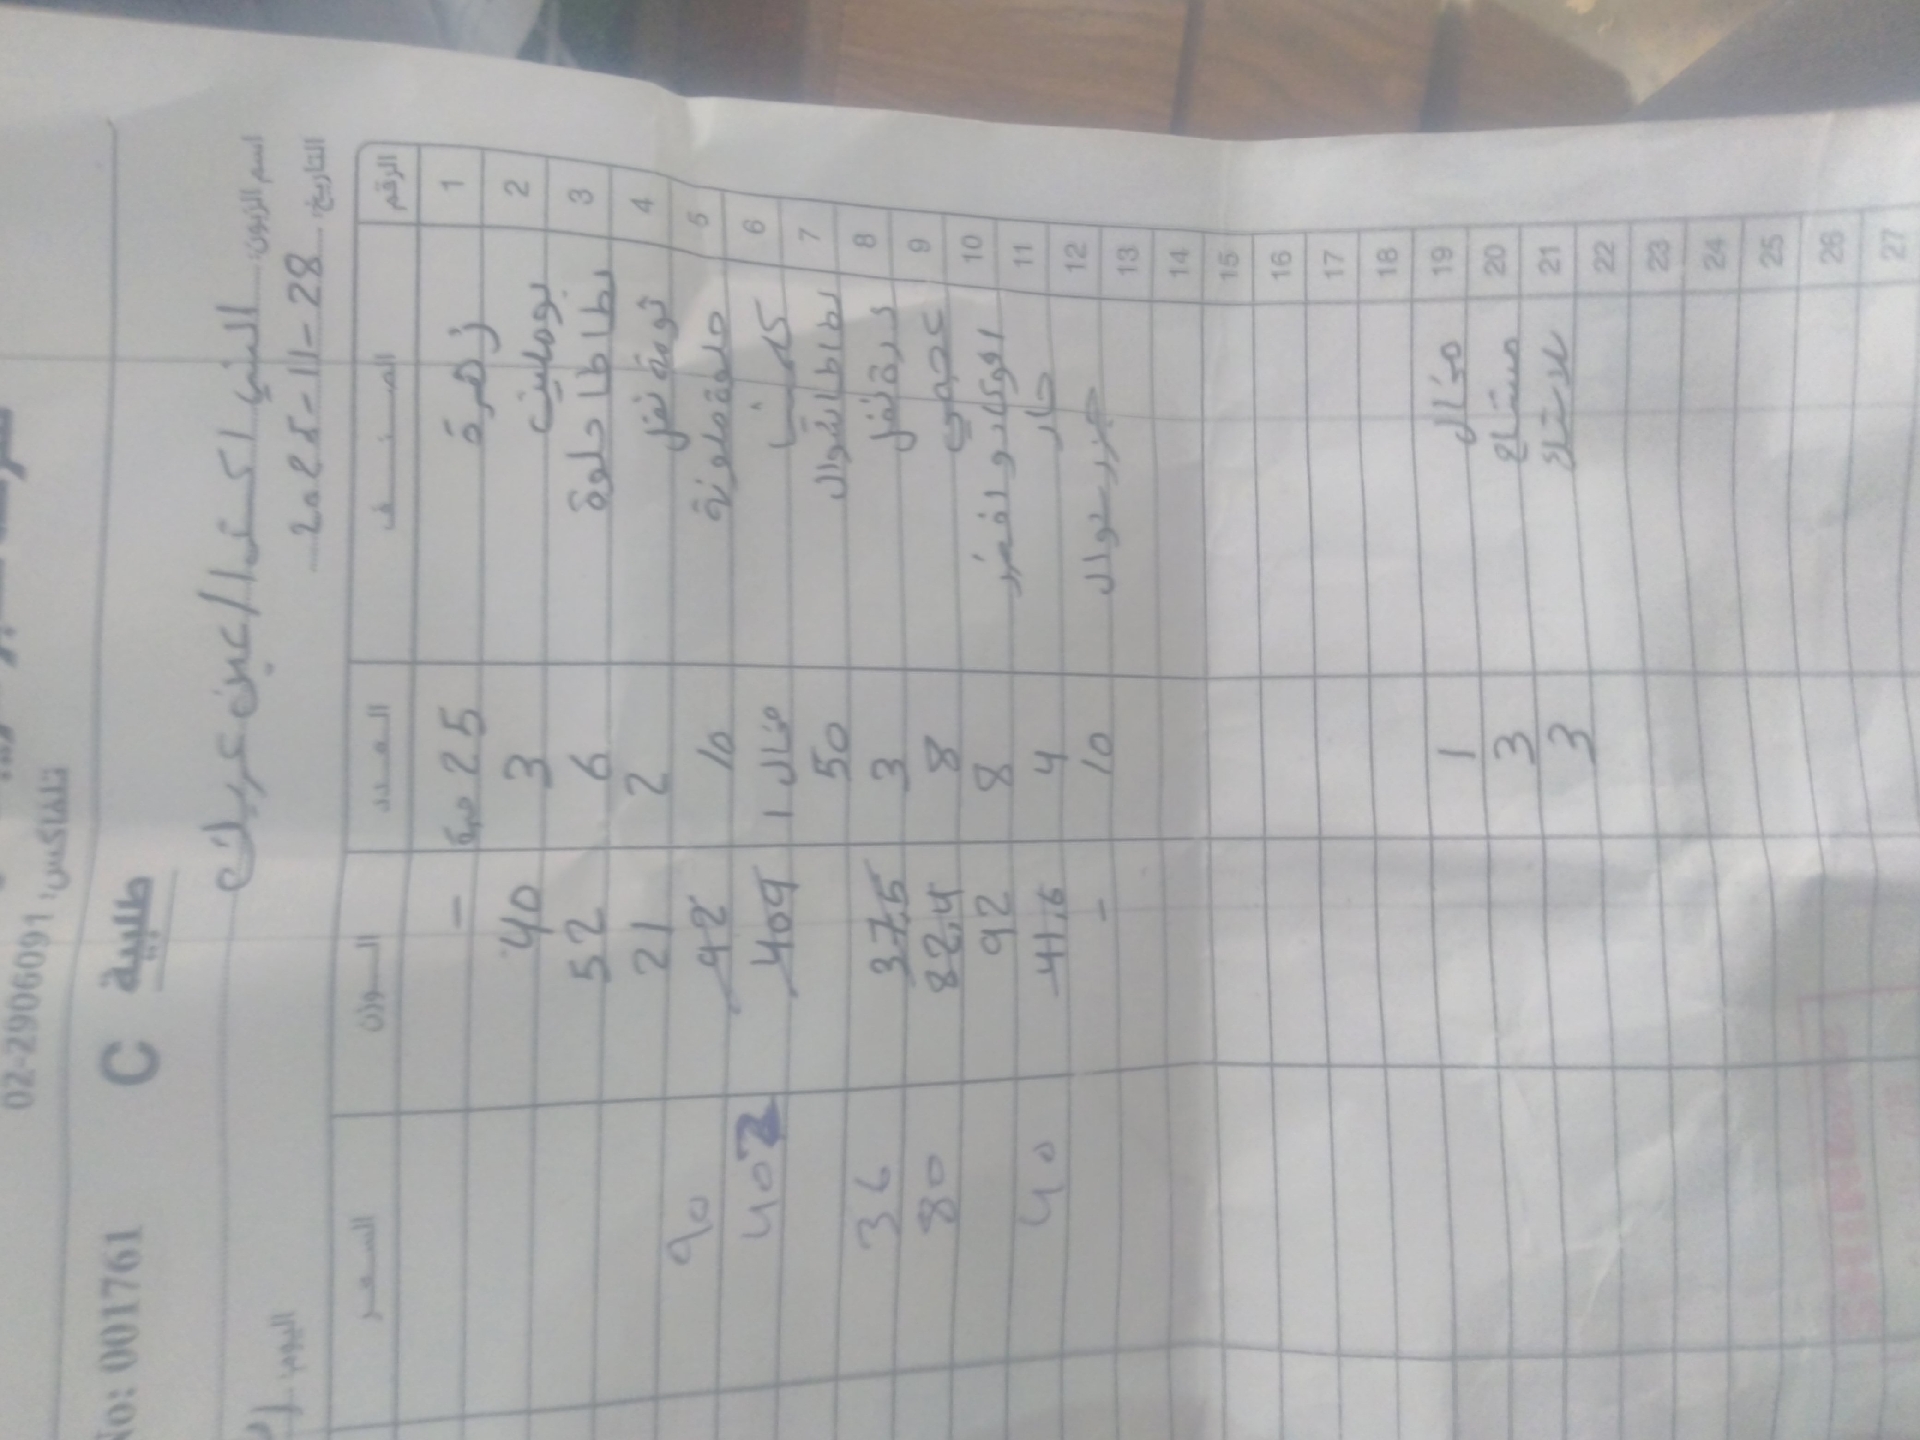 تلفاكس: 02-2906091
No: 001761 C طلبية
اسم الزبون: السني اكسترا / عين عريك
التاريخ: 28-11-2025 اليوم:
الرقم الصنف العدد الوزن السعر
1 زهرة 25 حبة -
2 بوملي 3 40
3 بطاطا حلوة 6 52
4 ثومة نفل 2 21
5 ملونة 10 92 90
6 1 409 402
7 بطاطا شوال 50
8 ذرة نفل 3 37.5 36
9 عجمي 8 82.4 80
10 افوكادو 8 92
11 حار 4 41.6 40
12 جزر شوال 10 -
13
14
15
16
17
18
19 1
20 3
21 3
22
23
24
25
26
27